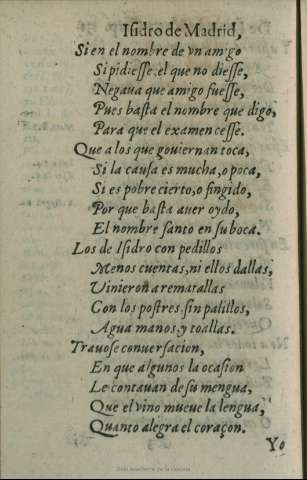 Isidro de Madrid,
Si en el nombre de vn amigo
Si pidiesse, el que no diesse,
Negaua que amigo fuesse,
Pues basta el nombre que digo,
Para que el examen cesse.
Que a los que gouiernan toca,
Si la causa es mucha, o poca,
Si es pobre cierto, o fingido,
Por que basta auer oydo,
El nombre santo en su boca.
Los de Isidro con pedillos
Menos cuentas, ni ellos dallas,
Uinieron a rematallas
Con los postres sin palillos,
Agua manos, y toallas.
Trauose conuersacion,
En que algunos la ocasion
Le contauan de su mengua,
Que el vino mueue la lengua,
Quanto alegra el coraçon.
Yo
Real Academia de la Historia